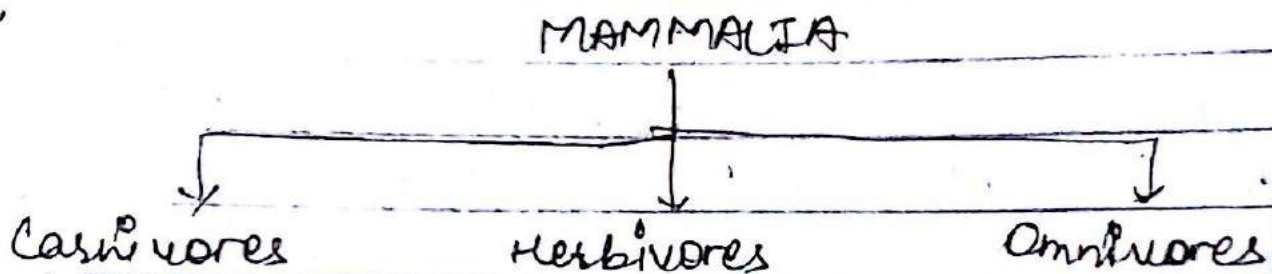 MAMMALIA
Carnivores Herbivores Omnivores